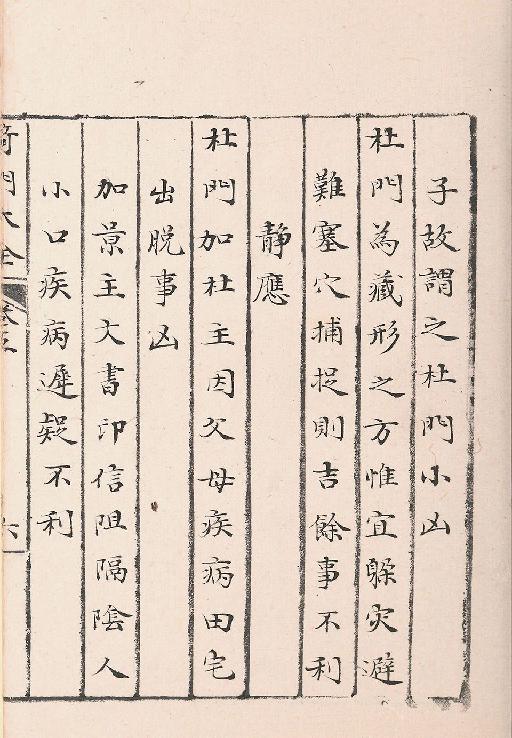 子故謂之杜門小凶
杜門為藏形之方惟宜躲灾避
難塞穴捕捉則吉餘事不利
靜應
杜門加杜主因父母疾病田宅
出脱事凶
加景主文書印信阻隔陰人
小口疾病遲疑不利